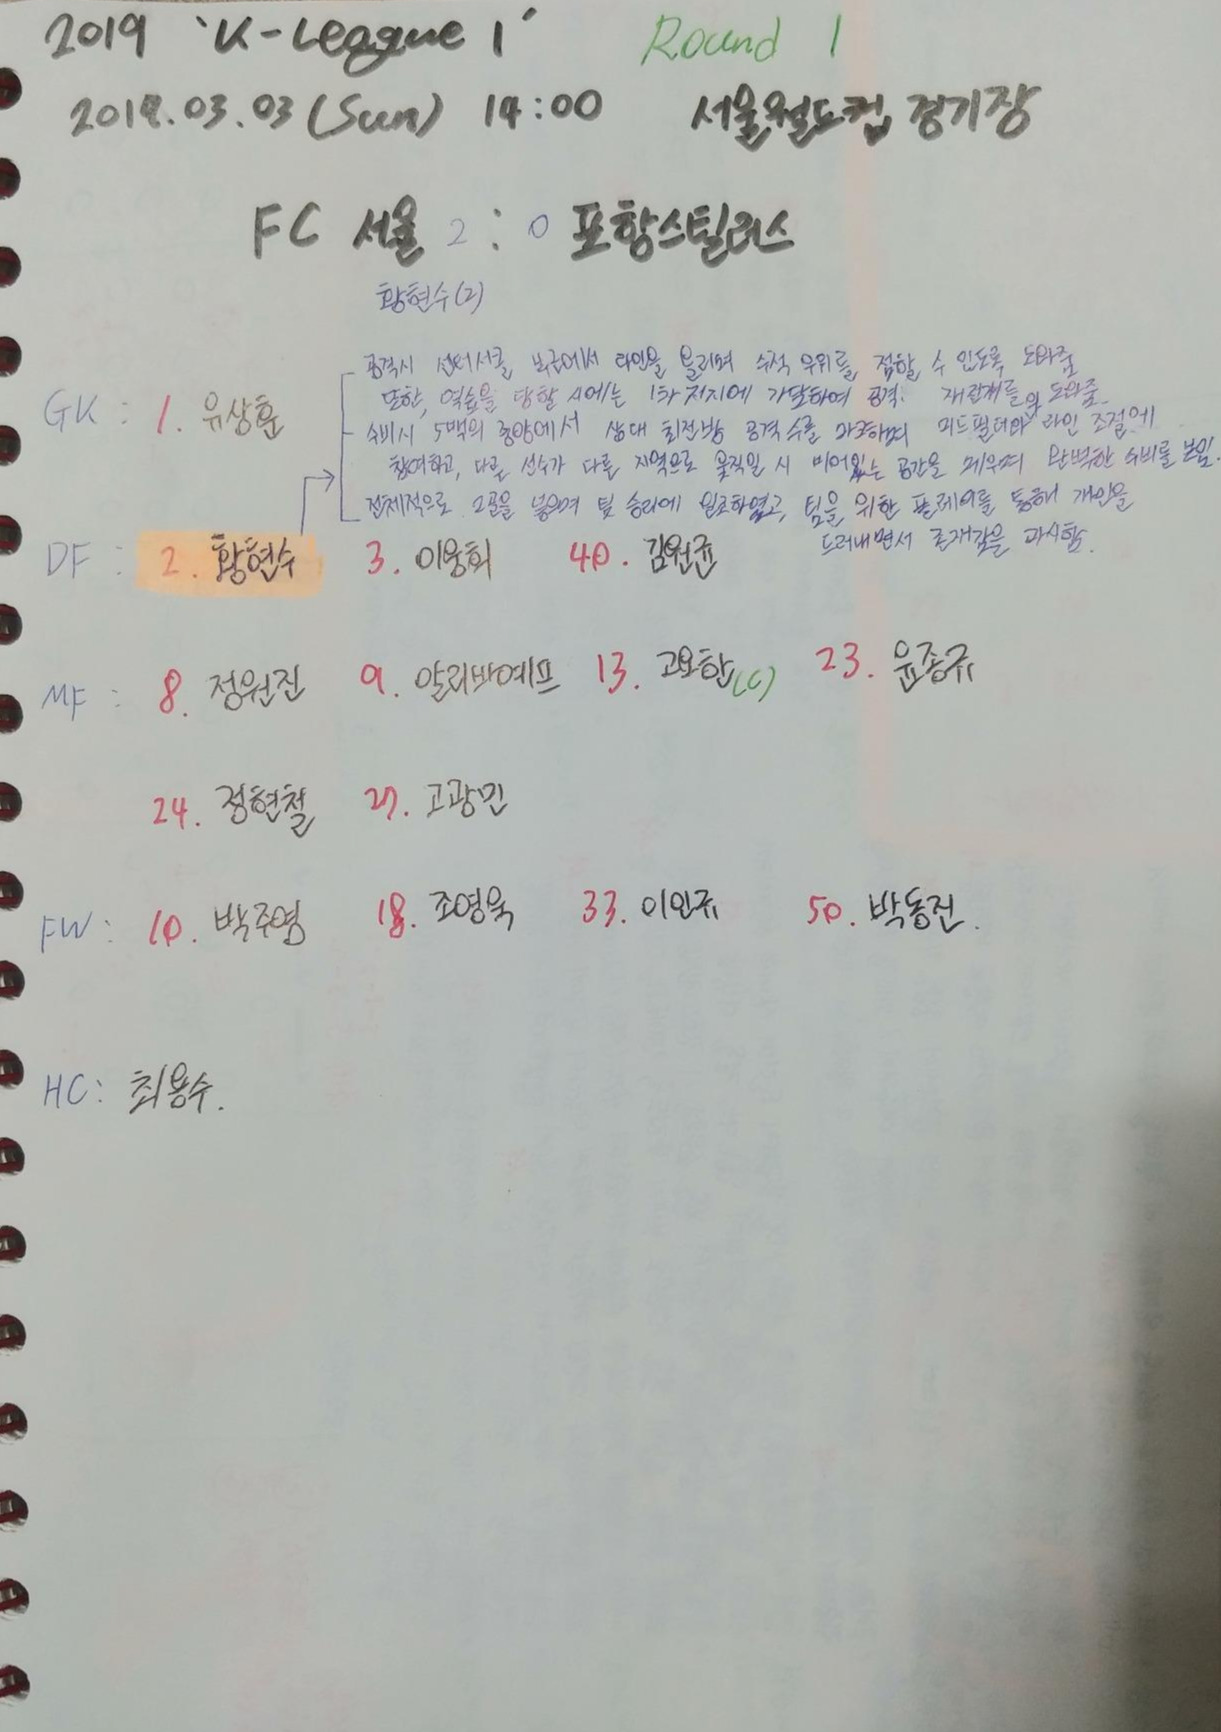 2019 'K-League 1' Round 1
2019.03.03 (Sun) 14:00 서울월드컵 경기장
FC 서울 2 : 0 포항스틸러스
황현수(2)
공격시 센터서클 부근에서 라인을 올리며 수적 우위를 점할 수 있도록 도와줌
또한, 역습을 당할 시에는 1차 저지에 가담하여 공격 재전개를 도와줌.
GK : 1. 유상훈
수비시 5백의 중앙에서 상대 최전방 공격수를 마크하며 미드필더와의 라인 조절에
참여하고, 다른 선수가 다른 지역으로 움직일 시 비어있는 공간을 메우며 완벽한 수비를 보임.
전체적으로 2골을 넣으며 팀 승리에 일조하였고, 팀을 위한 플레이를 통해 개인을
드러내면서 존재감을 과시함.
DF : 2. 황현수 3. 이웅희 40. 김원균
MF : 8. 정원진 9. 알리바예프 13. 고요한(C) 23. 윤종규
24. 정현철 27. 고광민
FW : 10. 박주영 18. 조영욱 33. 이인규 50. 박동진.
HC : 최용수.